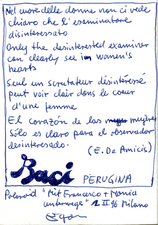 Nel cuore delle donne non ci vede
chiaro che l'esaminatore
disinteressato
Only the desinterested examiner
can clearly see in women's
hearts
Seul un scrutateur désintéressé
peut voir clair dans le coeur
d'une femme
El corazón de las mujeres
Sólo es claro para el observador
desinteresado.
(E. De Amicis)
Baci PERUGINA
Polaroid "Mit Francesco + Monica
unterwegs" 1 II 96 Milano